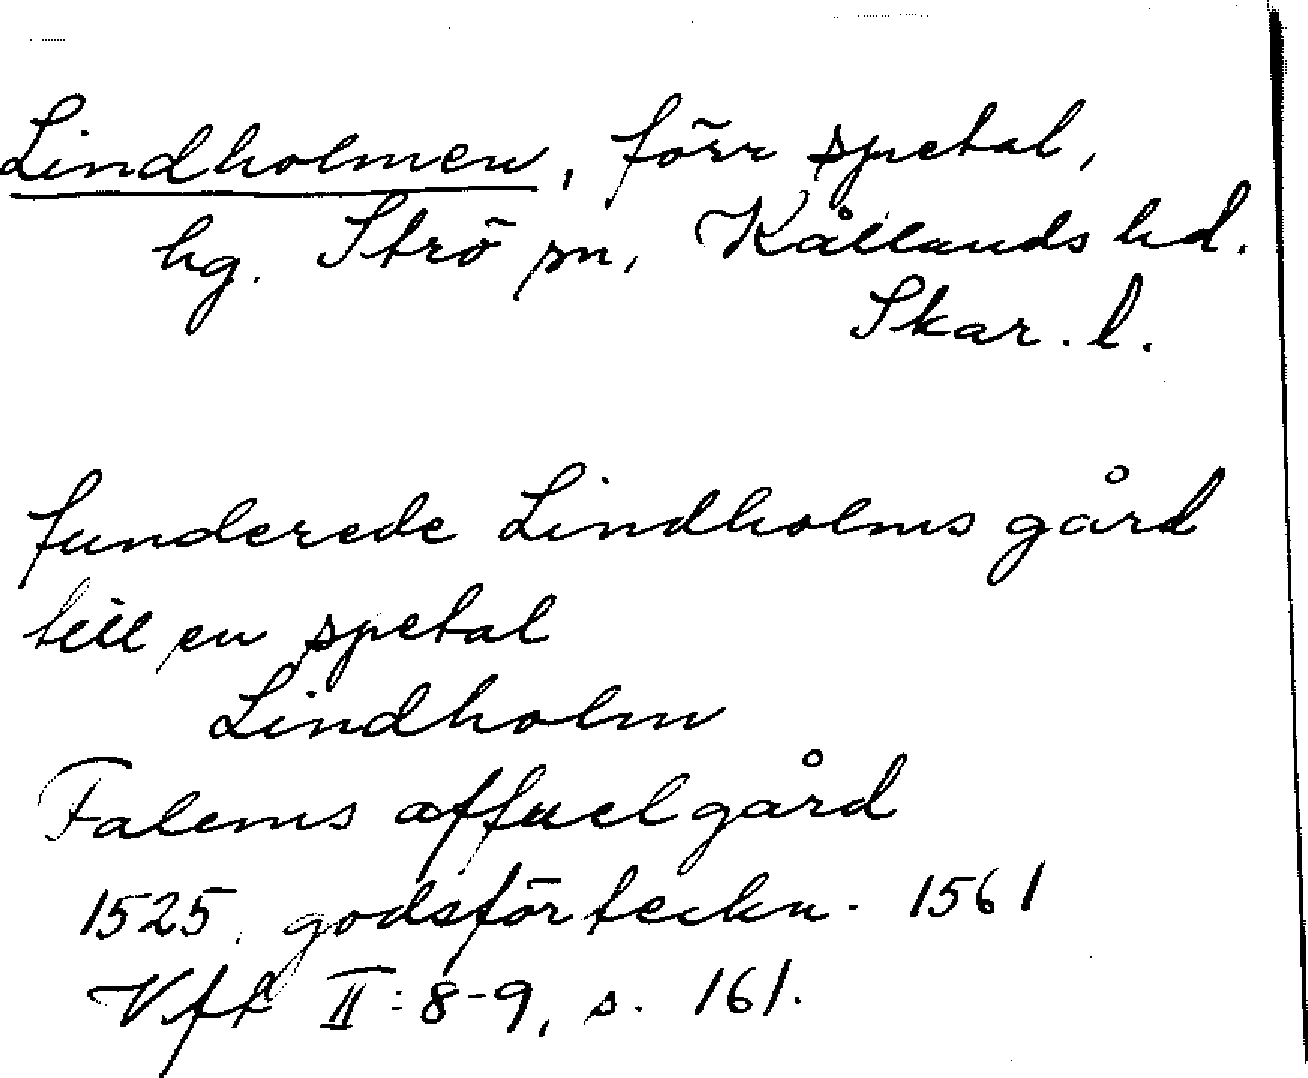 Lindholmen, förr spetal,
hg. Strö sn, Kållands hd.
Skar. l.
funderede Lindholms gård
till en spetal
Lindholm
Falems affuelgård
1525, godsförteckn. 1561
Vft II: 8-9, s. 161.